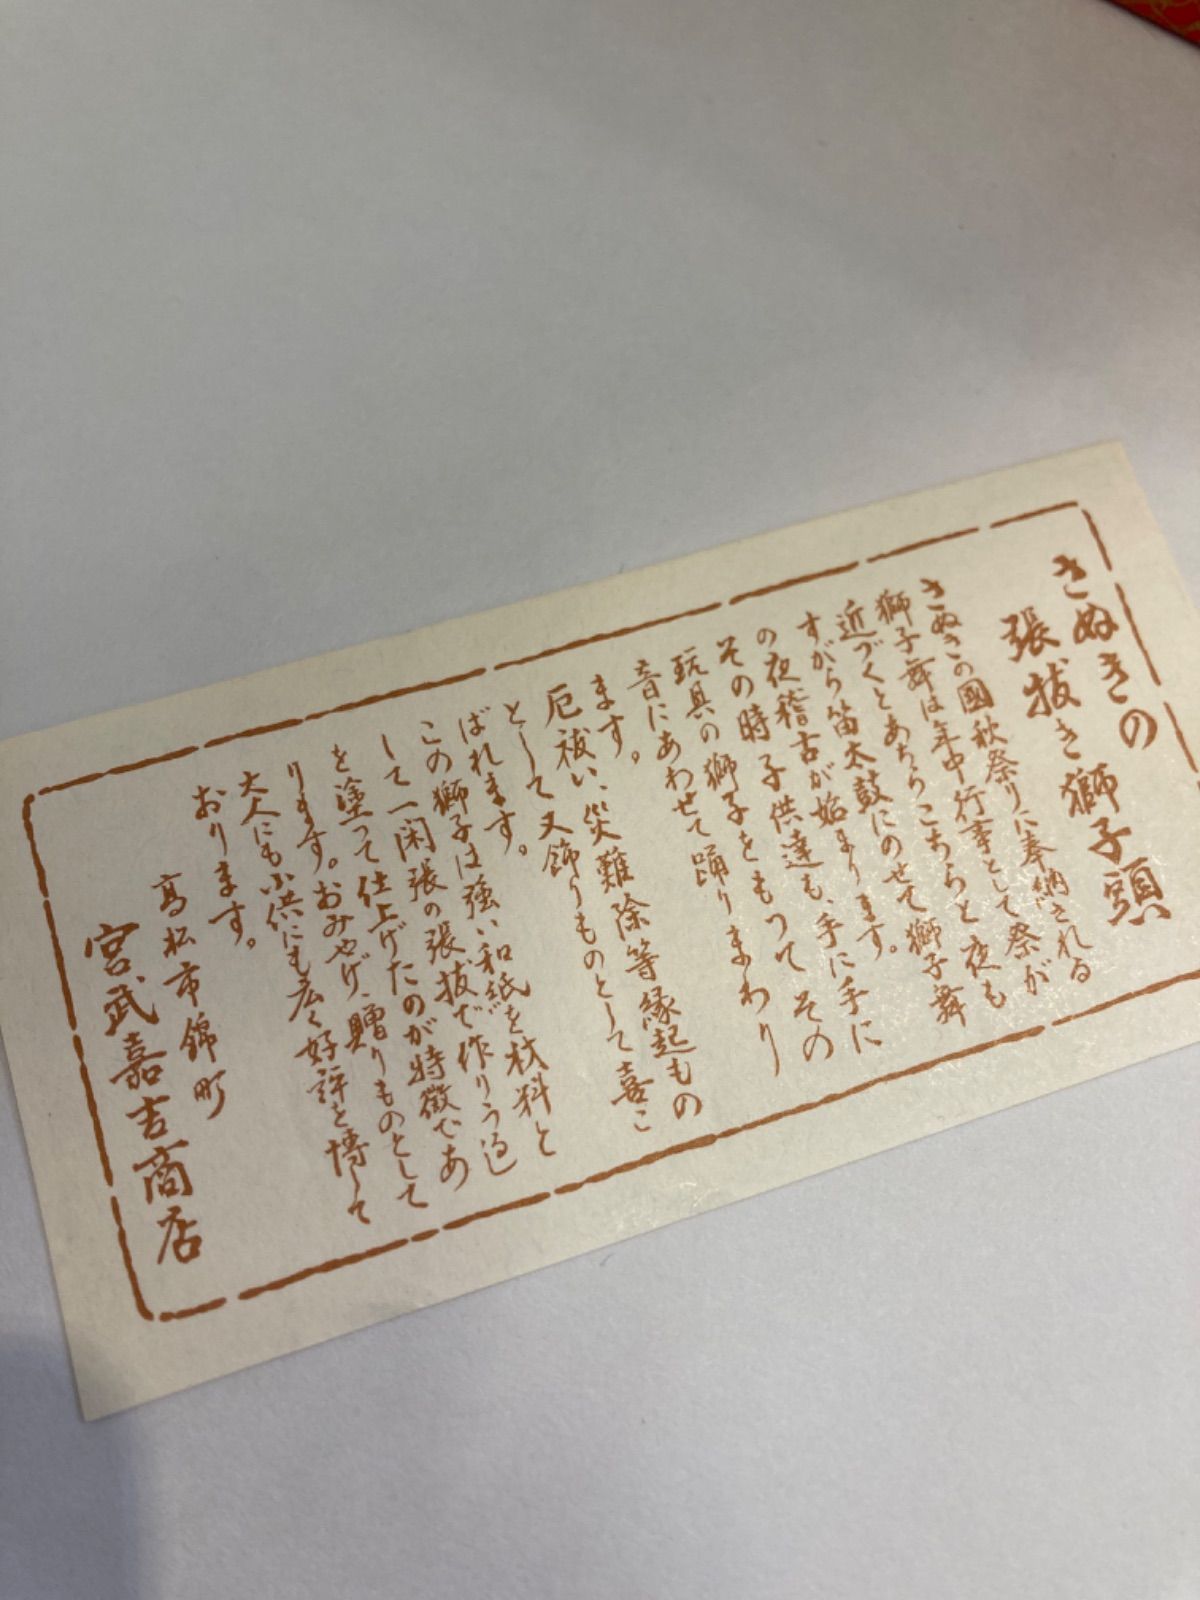 さぬきの
張抜き獅子頭
さぬきの國秋祭りに奉納される
獅子舞は年中行事として祭が
近づくとあちらこちらと夜も
すがら笛太鼓にのせて獅子舞
の夜稽古が始まります。
その時子供達も、手に手に
玩具の獅子をもつてその
音にあわせて踊りまわり
ます。
厄祓い、災難除等縁起もの
として又飾りものとして喜こ
ばれます。
この獅子は強い和紙を材料と
して一閑張の張抜で作りうるし
を塗って仕上げたのが特徴であ
ります。おみやげ、贈りものとして
大人にも小供にも広く好評を博して
おります。
高松市錦町
宮武嘉吉商店